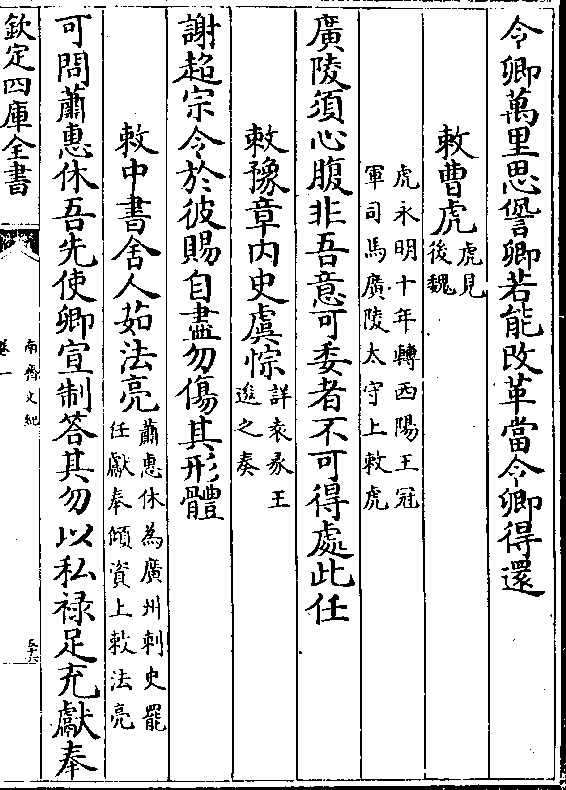 令卿萬里思諐卿若能改革當令卿得還
敕曹虎虎見後魏
虎永明十年轉西陽王冠
軍司馬廣陵太守上敕虎
廣陵須心腹非吾意可委者不可得處此任
敕豫章内史虞悰詳袁彖王
進之奏
謝超宗令於彼賜自盡勿傷其形體
敕中書舍人茹法亮蕭惠休為廣州刺史罷
任獻奉傾資上敕法亮
可問蕭惠休吾先使卿宣制答其勿以私禄足充獻奉
欽定四庫全書
南齊文紀
卷一